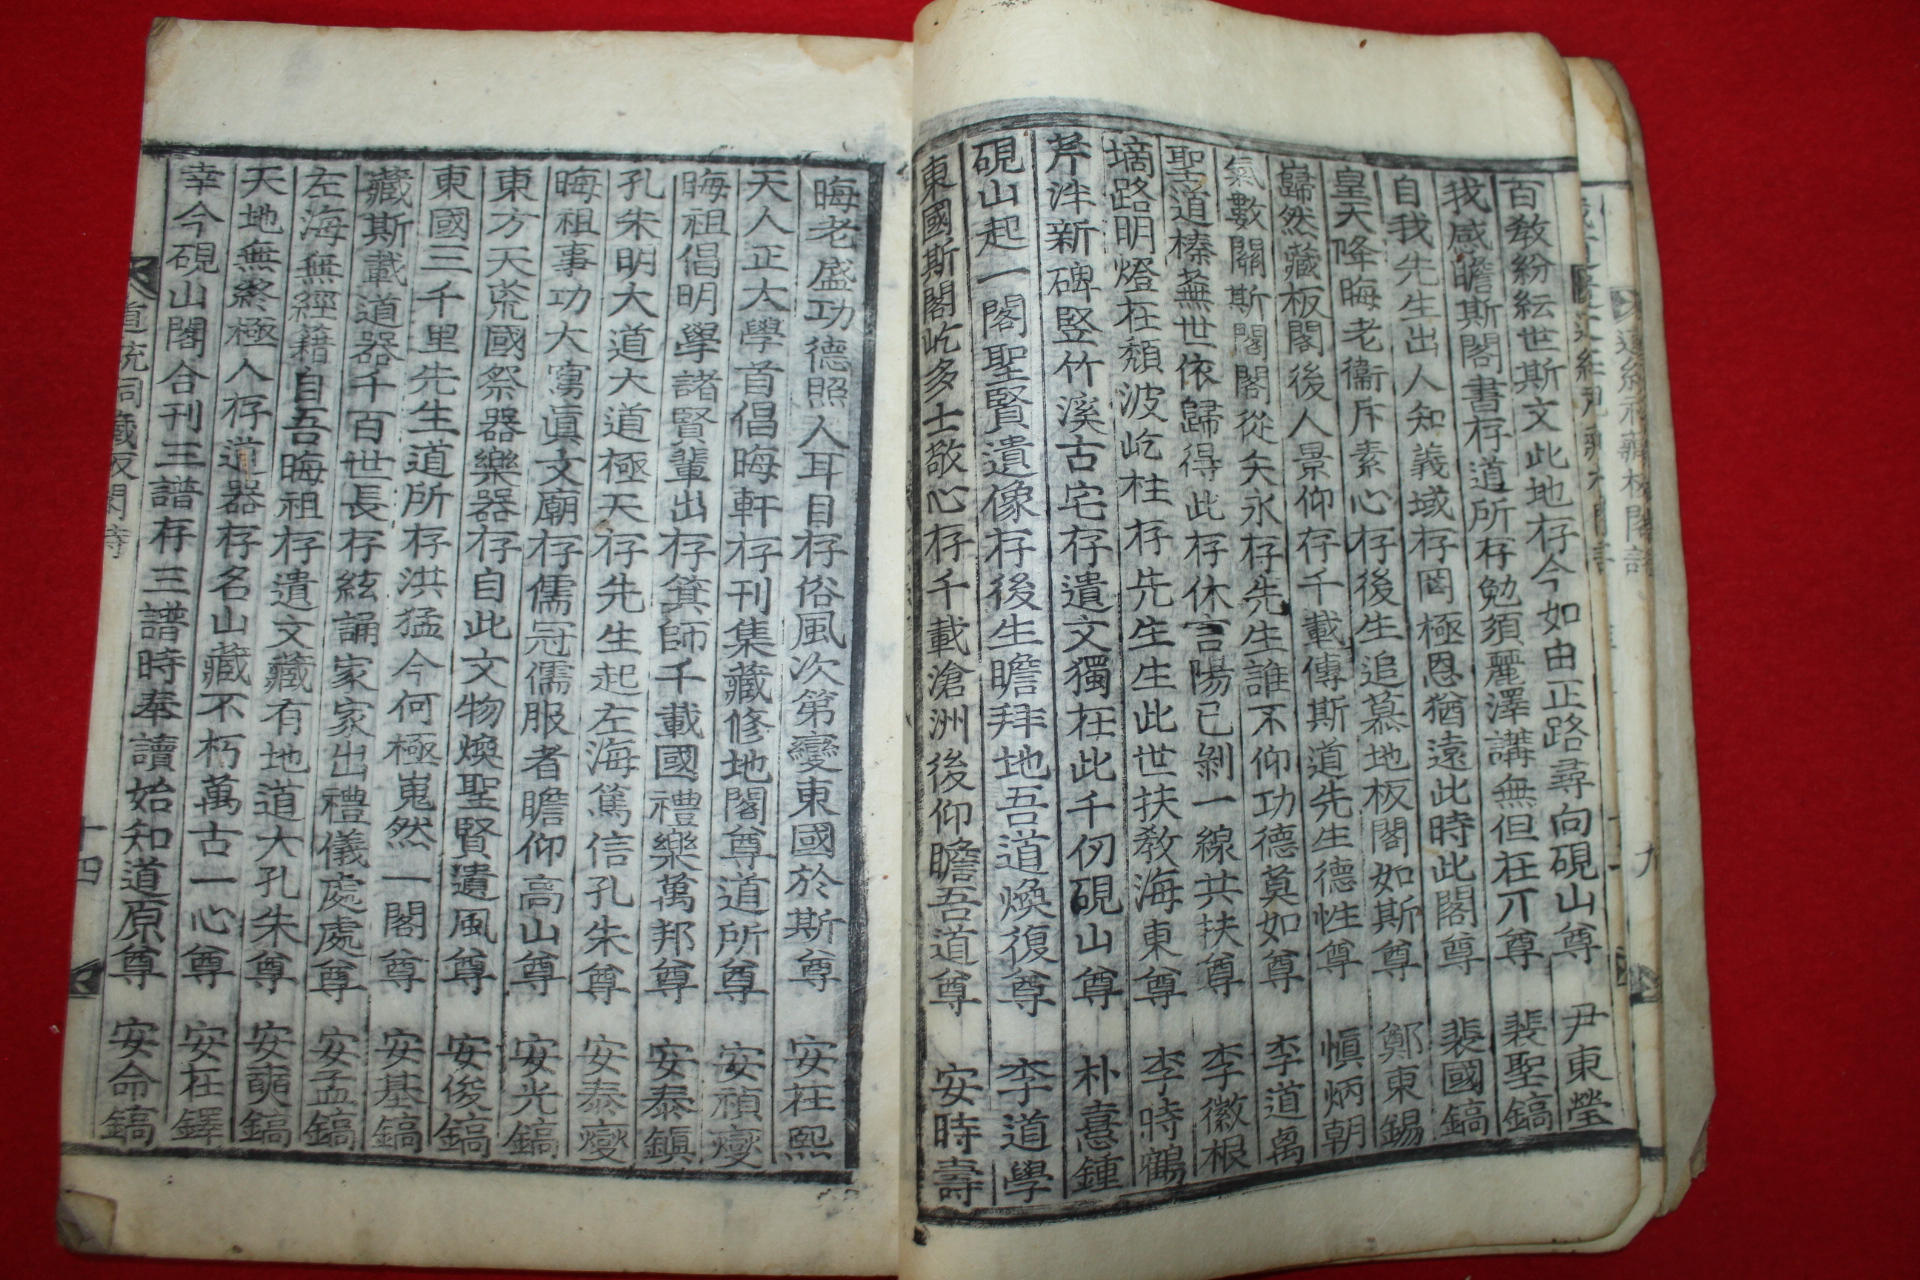 百敎紛紜世斯文此地存今如由正路尋向硯山尊 尹東瑩
我感瞻斯閣書存道所存勉須麗澤講無但在丌尊 裴聖鎬
自我先生出人知義域存罔極恩猶遠此時此閣尊 裴國鎬
皇天降晦老衞斥素心存後生追慕地板閣如斯尊 鄭東錫
巋然藏板閣後人景仰存千載傳斯道先生德性尊 愼炳朝
氣數關斯閣閣從矢永存先生誰不仰功德莫如尊 李道禼
聖道榛蕪世依歸得此存休言陽已剝一線共扶尊 李徽根
墑路明燈在頹波屹柱存先生生此世扶敎海東尊 李時鶴
芹泮新碑竪竹溪古宅存遺文獨在此千仞硯山尊 朴憙鍾
硯山起一閣聖賢遺像存後生瞻拜地吾道煥復尊 李道學
東國斯閣屹多士敬心存千載滄洲後仰瞻吾道尊 安時壽
晦老盛功德照人耳目存俗風次第變東國於斯尊 安在熙
天人正大學首倡晦軒存刊集藏修地閣尊道所尊 安禎燮
晦祖倡明學諸賢輩出存箕師千載國禮樂萬邦尊 安泰鎭
孔朱明大道大道極天存先生起左海篤信孔朱尊 安泰燮
晦祖事功大寓眞文廟存儒冠儒服者瞻仰高山尊 安光鎬
東方天荒國祭器樂器存自此文物煥聖賢遺風尊 安俊鎬
東國三千里先生道所存洪猛今何極嵬然一閣尊 安基鎬
藏斯載道器千百世長存絃誦家家出禮儀處處尊 安孟鎬
左海無經籍自吾晦祖存遺文藏有地道大孔朱尊 安奭鎬
天地無終極人存道器存名山藏不朽萬古一心尊 安在鐸
幸今硯山閣合刊三譜存三譜時奉讀始知道原尊 安命鎬
道統祠藏板閣詩 十四